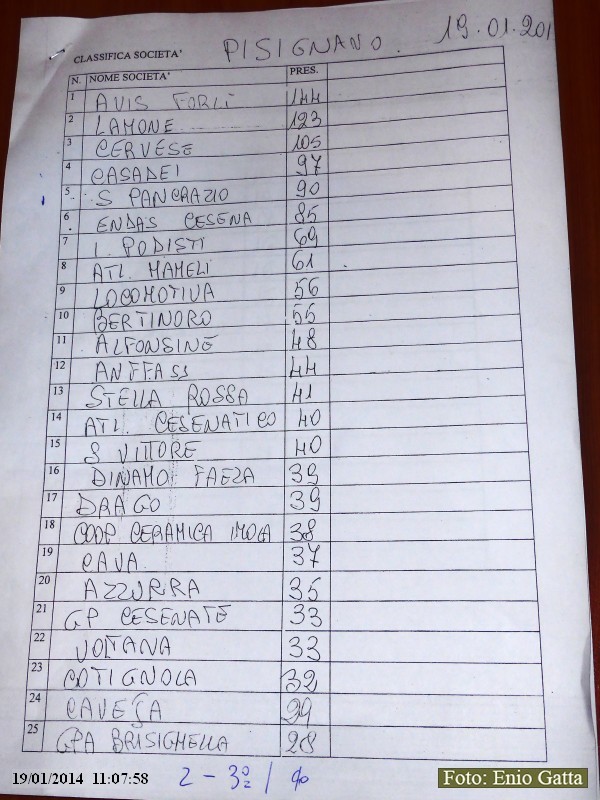 PISIGNANO. 19.01.201
CLASSIFICA SOCIETA'
N. NOME SOCIETA' PRES.
1 AVIS FORLI 144
2 LAMONE 123
3 CERVESE 105
4 CASADEI 97
5 S PANCRAZIO 90
6 ENDAS CESENA 85
7 I PODISTI 69
8 ATL. MAMELI 61
9 LOCOMOTIVA 56
10 BERTINORO 55
11 ALFONSINE 48
12 ANFFASS 44
13 STELLA ROSSA 41
14 ATL. CESENATICO 40
15 S VITTORE 40
16 DINAMO FAEZA 39
17 DRAGO 39
18 COOP CERAMICA IMOLA 38
19 CAVA 37
20 AZZURRA 35
21 GP CESENATE 33
22 VOLTANA 33
23 COTIGNOLA 32
24 29
25 GPA BRISIGHELLA 28
19/01/2014 11:07:58
2 - 3º /
Foto: Enio Gatta